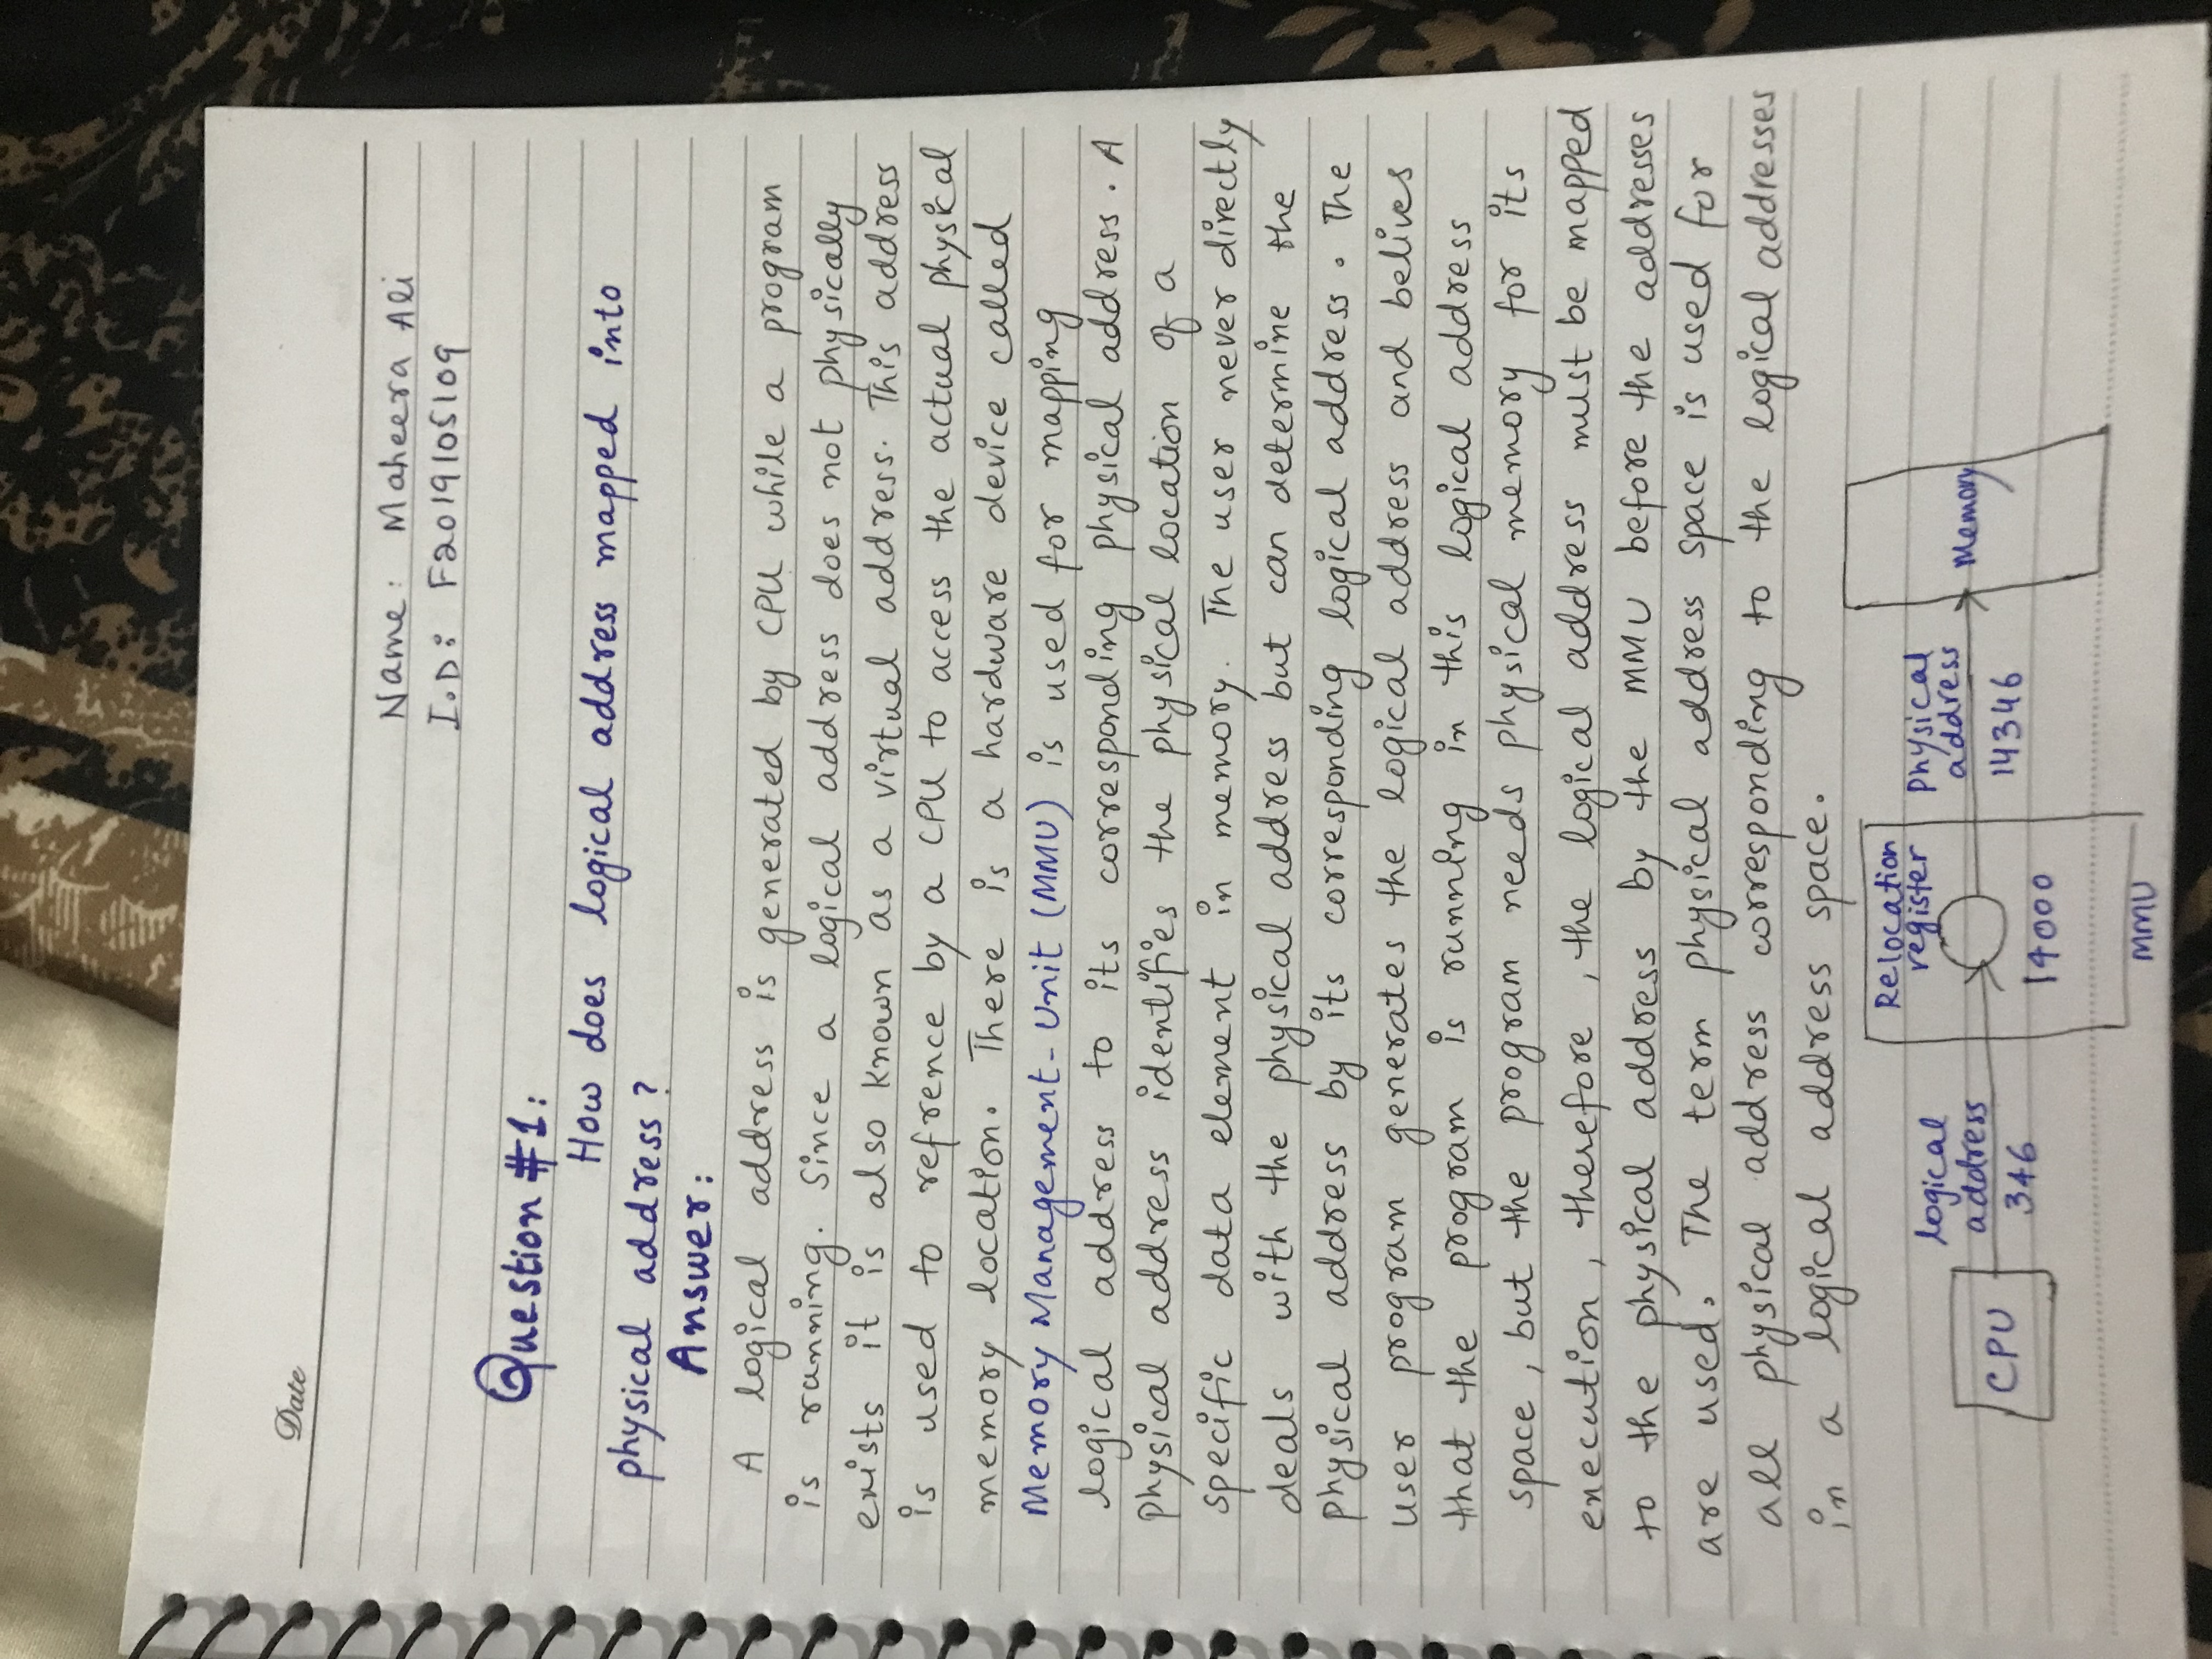 Date
Name: Maheera Ali
I.D: F2019105109
Question #1:
How does logical address mapped into
physical address?
Answer:
A logical address is generated by CPU while a program
is running. Since a logical address does not physically
exists it is also known as a virtual address. This address
is used to refrence by a CPU to access the actual physical
memory location. There is a hardware device called
Memory Management-Unit (MMU) is used for mapping
logical address to its corresponding physical address. A
physical address identifies the physical location of a
specific data element in memory. The user never directly
deals with the physical address but can determine the
physical address by its corresponding logical address. The
user program generates the logical address and belives
that the program is running in this logical address
space, but the program needs physical memory for its
execution, therefore, the logical address must be mapped
to the physical address by the MMU before the addresses
are used. The term physical address space is used for
all physical address corresponding to the logical addresses
in a logical address space.
CPU
logical
address
346
Relocation
register
14000
MMU
Physical
address
14346
Memory